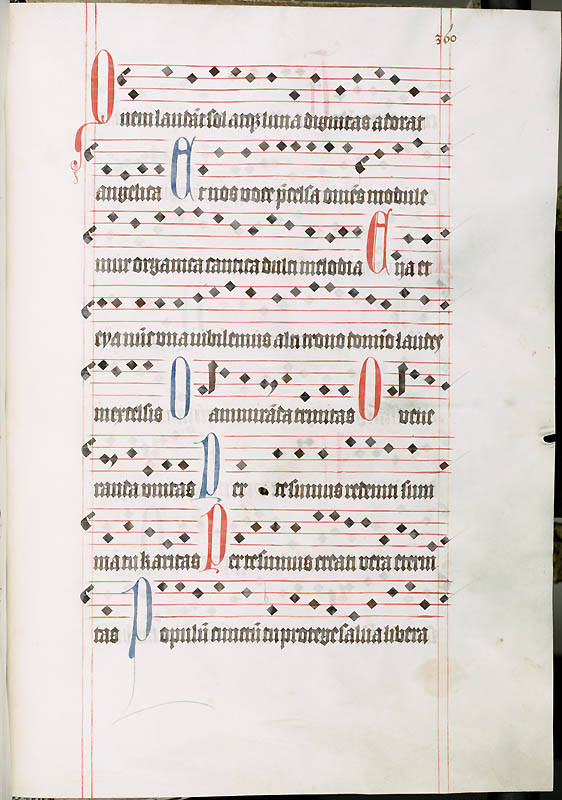 360
Quem laudāt sol atqꝫ luna dignitas adorat
angelica Et nos voce p̄celsa om̄es module
mur organica cantica dulci melodia Eya et
eya nūc vna iubilemus alti trono domīo laudes
in excelsis O ammirāda trinitas O vene
randa vnitas Per te sumus redemti sum
ma tu karitas Per te sumus creati vera eterni
tas Populū cunctū tu protege salua libera